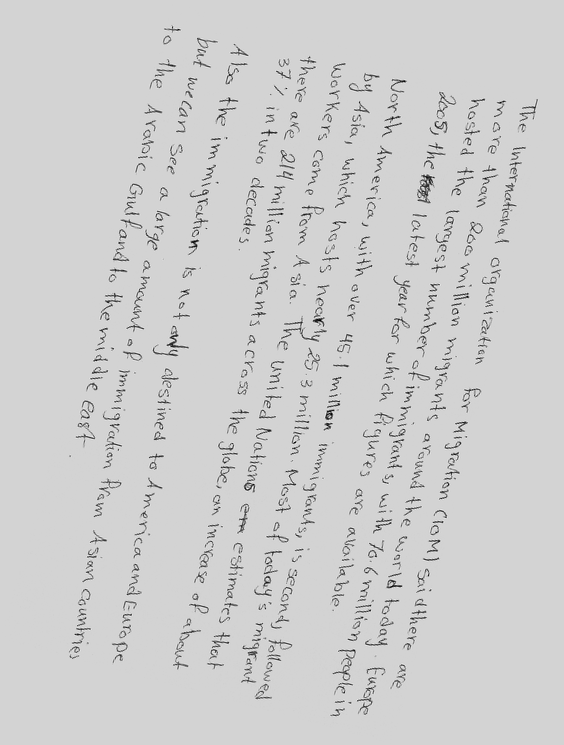 The International organization for Migration (IOM) said there are
more than 200 million migrants around the world today. Europe
hosted the largest number of immigrants, with 70.6 million people in
2005, the latest year for which figures are available.
North America, with over 45.1 million immigrants, is second, followed
by Asia, which hosts nearly 25.3 million. Most of today's migrant
workers come from Asia. The United Nations estimates that
there are 214 million migrants across the globe, an increase of about
37% in two decades.
Also the immigration is not only destined to America and Europe
but we can see a large amount of immigration from Asian countries
to the Arabic Gulf and to the middle east.